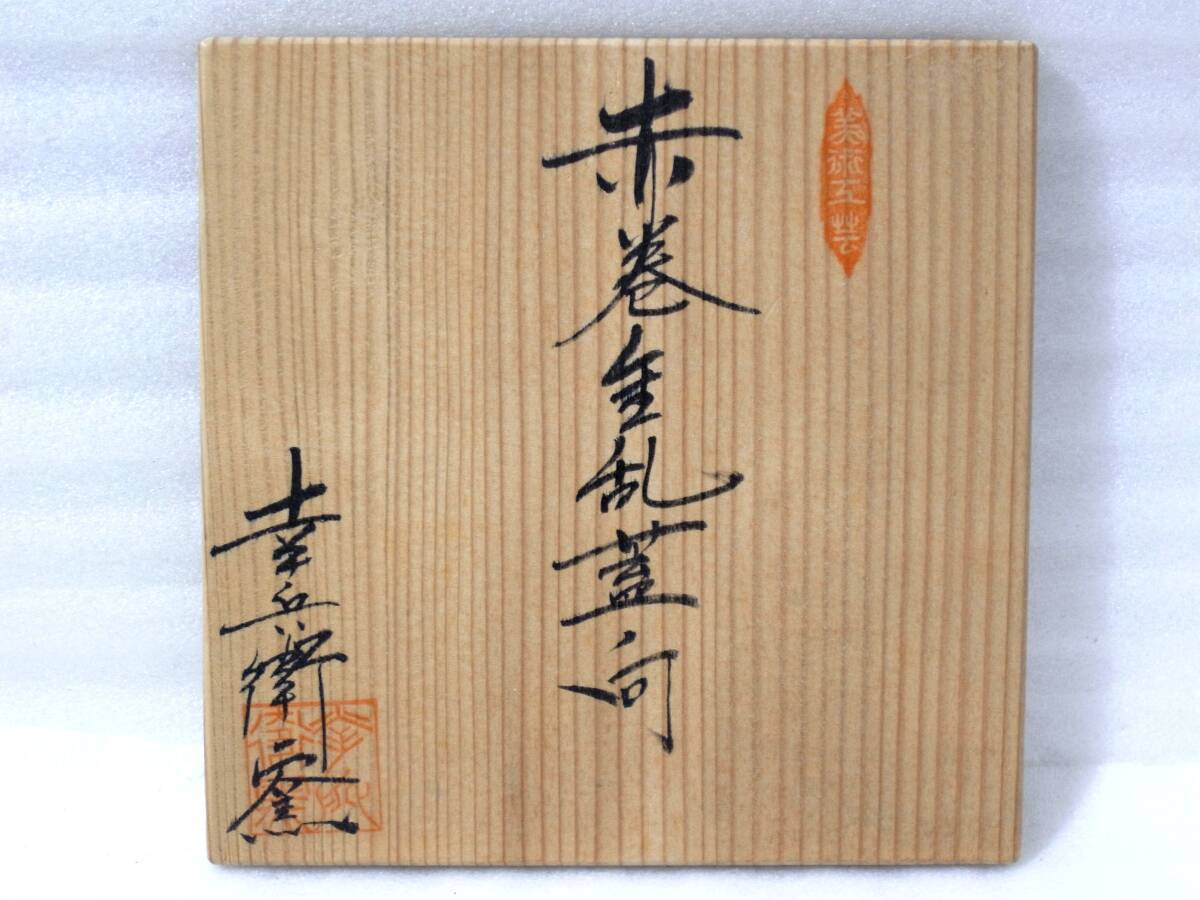 美術工芸
赤巻金乱蓋向
幸兵衛窯